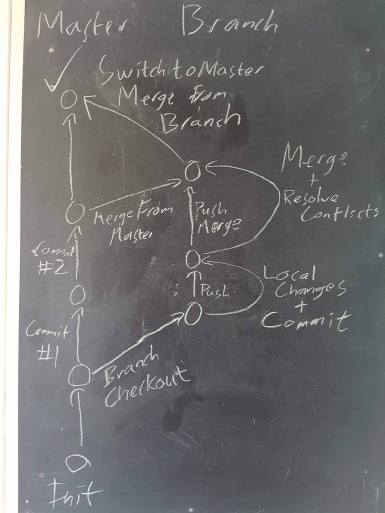 Master Branch
Switch to Master
Merge From
Branch
Merge
+
Resolve
Conflicts
Merge From
Master
Push
Merge
Commit
#2
Local
Changes
+
Commit
Push
Commit
#1
Branch
Checkout
Init